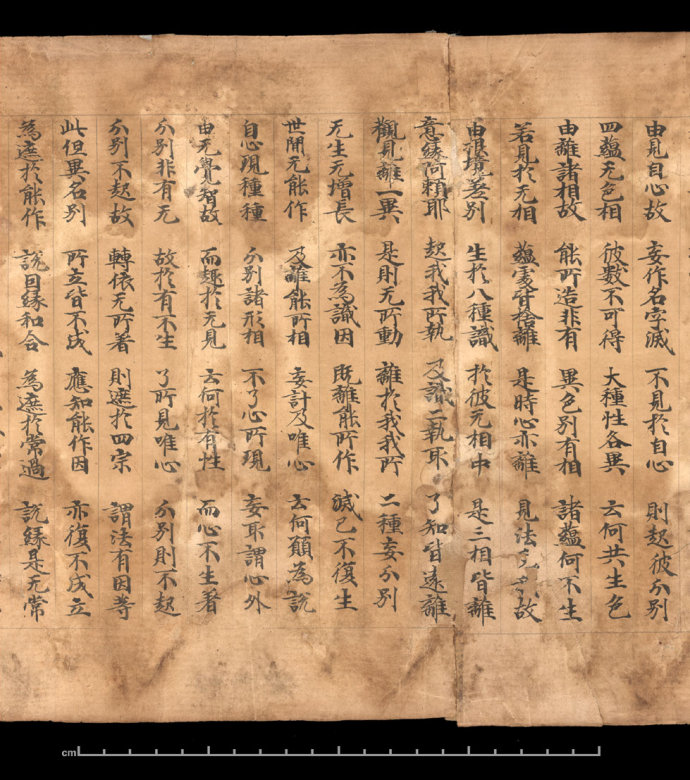 由見自心故　妄作名字滅　不見於自心　則起彼分別
四蘊无色相　彼數不可得　大種性各異　云何共生色
由離諸相故　能所造非有　異色別有相　諸蘊何不生
若見於无相　蘊處皆捨離　是時心亦離　見法无我故
由根境差別　生於八種識　於彼无相中　是三相皆離
意緣阿賴耶　起我我所執　及識二執取　了知皆遠離
觀見離一異　是則无所動　離於我我所　二種妄分別
无生无增長　亦不為識因　既離能所作　滅已不復生
世間无能作　及離能所相　妄計及唯心　云何願為說
自心現種種　分別諸形相　不了心所現　妄取謂心外
由无覺智故　而趣於无見　云何於有性　而心不生著
分別非有无　故於有不生　了所見唯心　分別則不起
分別不起故　轉依无所著　則遮於四宗　謂法有因等
此但異名別　所立皆不成　應知能作因　亦復不成立
為遮於能作　說因緣和合　為遮於常過　說緣是无常
cm